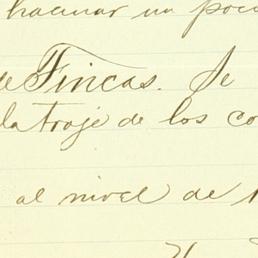 hacinar un poco
de Fincas. Se
la troje de los co
al nivel de